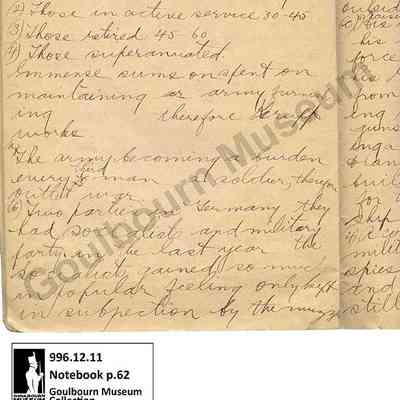 2) Those in active service 30-45
3) Those retired 45-60
4) Those superannuated
Immense sums on spent on
maintaining or army furnish
ing therefore
works
The army becoming a burden
every man a soldier, therefore
civil war
(6) Two parties in Germany they
had socialists and military
party in the last year the
socialists gained so much
in popular feeling only kept
in subjection by the
outside
his
his
force
from
ing
guns
for
ship
milit
spies
and
still
Goulbourn Museum
996.12.11
Notebook p.62
Goulbourn Museum
Collection
GOULBOURN
MUSEUM